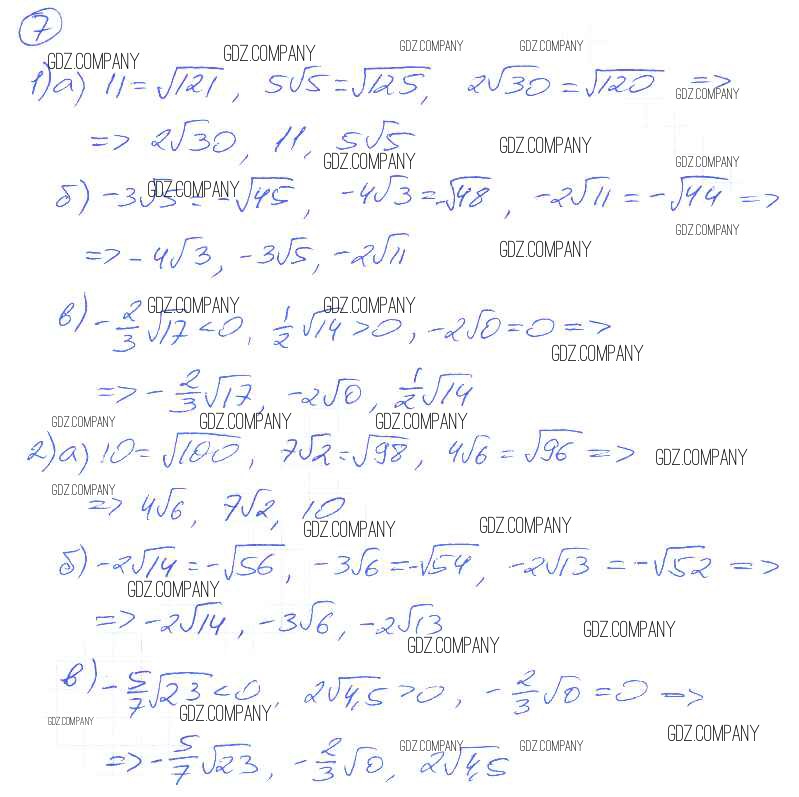 7
GDZ.COMPANY GDZ.COMPANY GDZ.COMPANY GDZ.COMPANY
1) а) 11 = √121, 5√5 = √125, 2√30 = √120 =>
GDZ.COMPANY
=> 2√30, 11, 5√5
GDZ.COMPANY GDZ.COMPANY GDZ.COMPANY
б) -3√5 = -√45, -4√3 = -√48, -2√11 = -√44 =>
GDZ.COMPANY GDZ.COMPANY
=> -4√3, -3√5, -2√11
GDZ.COMPANY
в) -2/3√17 < 0, 1/2√14 > 0, -2√0 = 0 =>
GDZ.COMPANY GDZ.COMPANY GDZ.COMPANY
=> -2/3√17, -2√0, 1/2√14
GDZ.COMPANY GDZ.COMPANY GDZ.COMPANY
2) а) 10 = √100, 7√2 = √98, 4√6 = √96 =>
GDZ.COMPANY
GDZ.COMPANY
=> 4√6, 7√2, 10
GDZ.COMPANY GDZ.COMPANY
б) -2√14 = -√56, -3√6 = -√54, -2√13 = -√52 =>
GDZ.COMPANY
=> -2√14, -3√6, -2√13
GDZ.COMPANY GDZ.COMPANY
в) -5/7√23 < 0, 2√4,5 > 0, -2/3√0 = 0 =>
GDZ.COMPANY GDZ.COMPANY GDZ.COMPANY
=> -5/7√23, -2/3√0, 2√4,5
GDZ.COMPANY GDZ.COMPANY